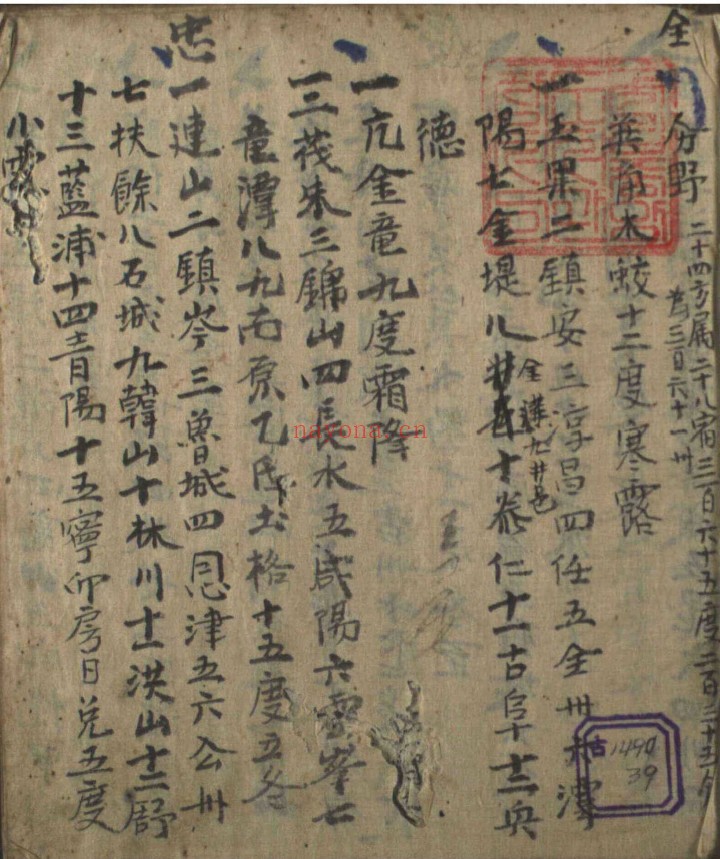 全
分野 二十四方属二十八宿三百六十五度二百三十五分
為三百六十一州
英角木蛟十二度寒露
一玉果二鎮安三淳昌四任五全州六潭
陽七金堤八井邑十泰仁十一古阜十二
金溝九井邑
德
一亢金竜九度霜降
一三茂朱三鏞山四長水五咸陽六雲峯七
竜潭八九南原乙氐土格十五度立冬
忠一連山二鎮岑三魯城四恩津五六公州
七扶餘八石城九韓山十林川十一洪山十二舒
十三藍浦十四青陽十五寧卯房日兔五度
小雪
ndyona.cn
古1490
39